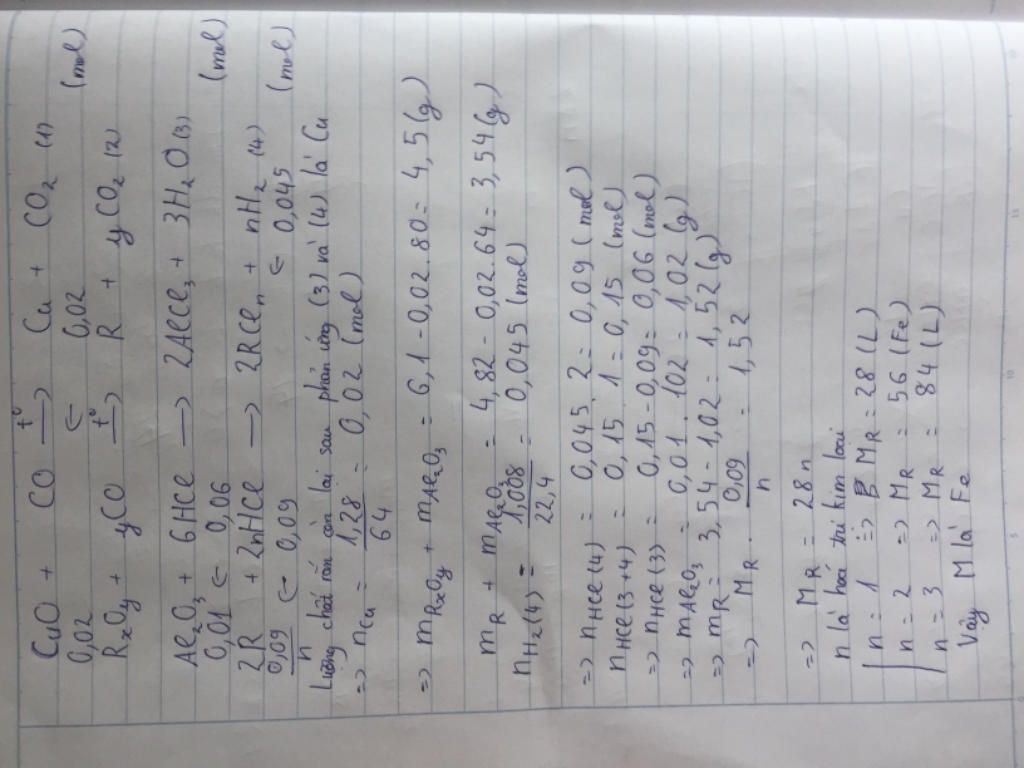 CuO + CO t° → Cu + CO₂ (1)
0,02 ← 0,02 (mol)
RxOy + yCO t° → R + yCO₂ (2)
Al₂O₃ + 6HCl → 2AlCl₃ + 3H₂O (3)
0,01 ← 0,06 (mol)
2R + 2nHCl → 2RCln + nH₂ (4)
0,09/n ← 0,09 ← 0,045 (mol)
Lượng chất rắn còn lại sau phản ứng (3) và (4) là Cu
=> nCu = 1,28/64 = 0,02 (mol)
=> mRxOy + mAl₂O₃ = 6,1 - 0,02.80 = 4,5 (g)
mR + mAl₂O₃ = 4,82 - 0,02.64 = 3,54 (g)
nH₂(4) = 1,008/22,4 = 0,045 (mol)
=> nHCl(4) = 0,045.2 = 0,09 (mol)
nHCl(3+4) = 0,15.1 = 0,15 (mol)
=> nHCl(3) = 0,15-0,09 = 0,06 (mol)
=> mAl₂O₃ = 0,01.102 = 1,02 (g)
=> mR = 3,54 - 1,02 = 1,52 (g)
=> MR . 0,09/n = 1,52
=> MR = 28n
n là hoá trị kim loại
n = 1 => MR = 28 (L)
n = 2 => MR = 56 (Fe)
n = 3 => MR = 84 (L)
Vậy M là Fe